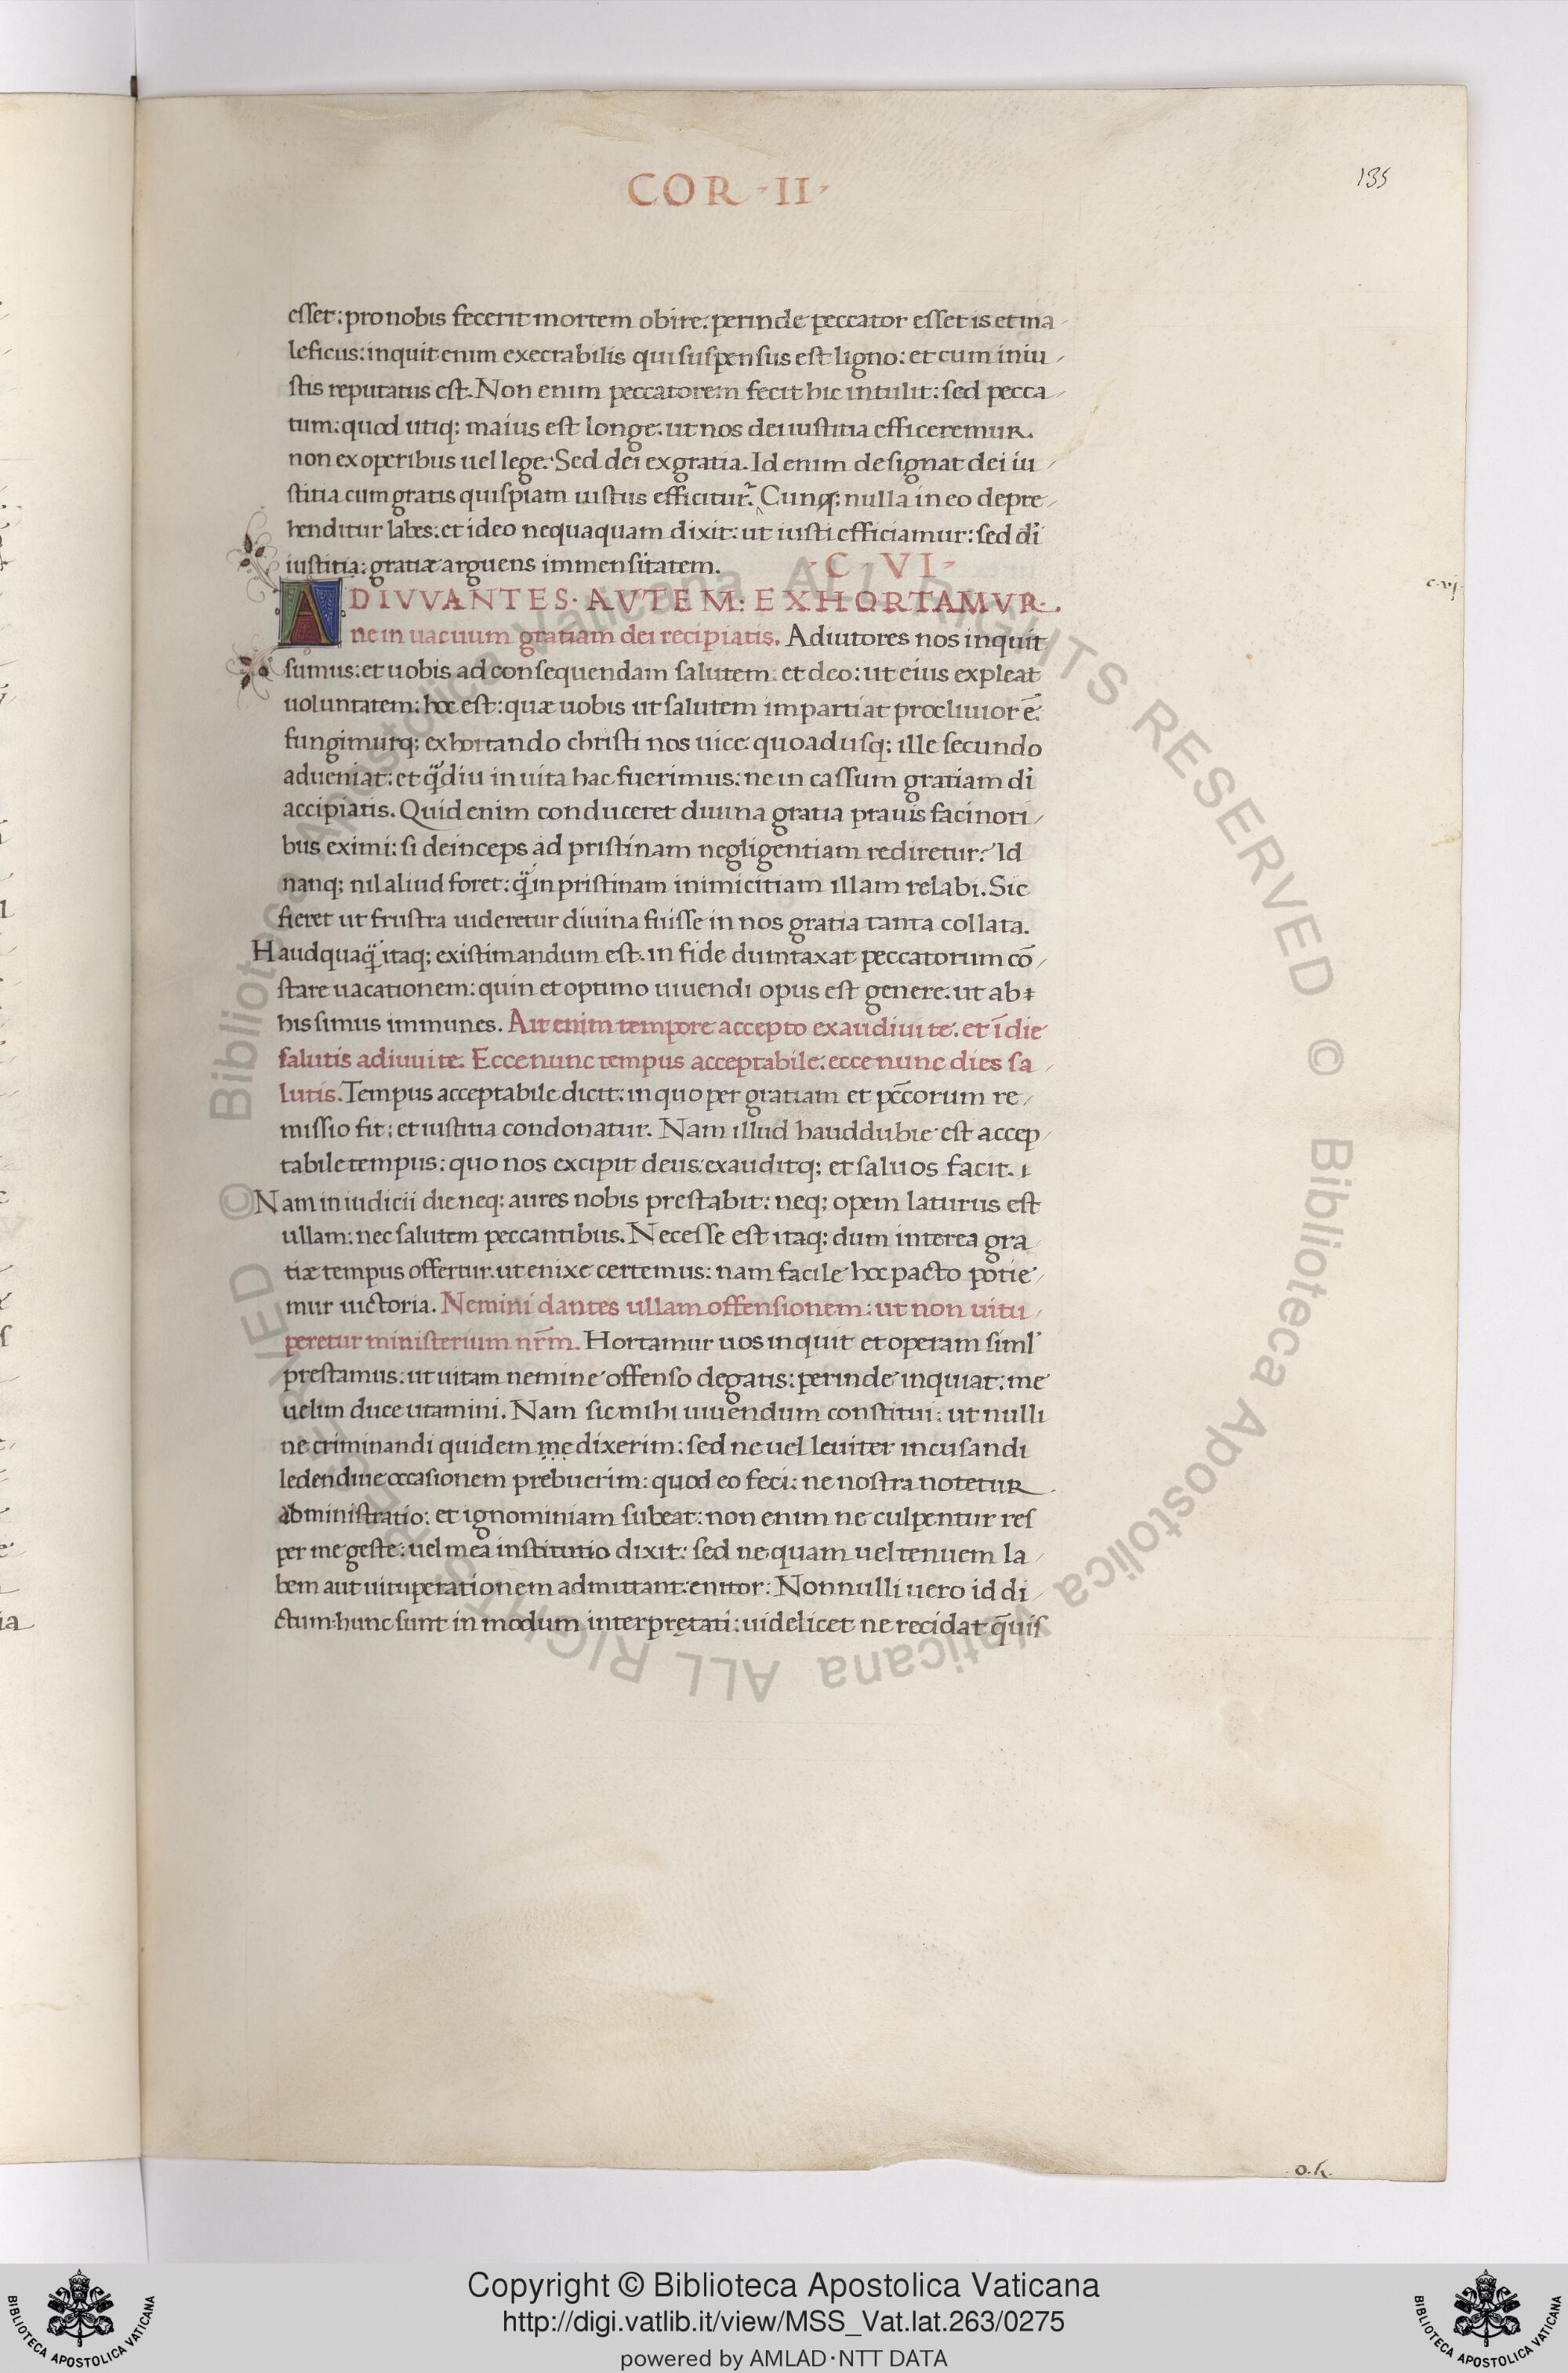 COR · II ·
135
esset: pro nobis fecerit mortem obire: perinde peccator esset is et ma
leficus: inquit enim execrabilis qui suspensus est ligno: et cum iniu
stis reputatus est. Non enim peccatorem fecit hic intulit: sed pecca
tum: quod utiq; maius est longe: ut nos dei iustitia efficeremur.
non ex operibus uel lege: Sed dei ex gratia. Id enim designat dei iu
stitia cum gratis quispiam iustus efficitur. Cunq; nulla in eo depre
henditur labes: et ideo nequaquam dixit: ut iusti efficiamur: sed dī
iustitia: gratiæ arguens immensitatem. · C · VI ·
c. vj.
ADIVVANTES · AVTEM: EXHORTAMVR.
ne in uacuum gratiam dei recipiatis. Adiutores nos inquit
sumus: et uobis ad consequendam salutem: et deo: ut eius expleat
uoluntatem: hoc est: quæ uobis ut salutem impartiat procliuior ē:
fungimurq; exhortando christi nos uice: quoadusq; ille secundo
adueniat: et q̄diu in uita hac fuerimus: ne in cassum gratiam dī
accipiatis. Quid enim conduceret diuina gratia prauis facinori
bus eximi: si deinceps ad pristinam negligentiam rediretur: Id
nanq; nil aliud foret: q̄ in pristinam inimicitiam illam relabi. Sic
fieret ut frustra uideretur diuina fuisse in nos gratia tanta collata.
Haudquaq̄ itaq; existimandum est. in fide duntaxat peccatorum cō
stare uacationem: quin et optimo uiuendi opus est genere: ut ab
his simus immunes. Ait enim tempore accepto exaudiui te: et ī die
salutis adiuui te. Ecce nunc tempus acceptabile: ecce nunc dies sa
lutis. Tempus acceptabile dicit: in quo per gratiam et pc̄corum re
missio fit: et iustitia condonatur. Nam illud hauddubie est accep
tabile tempus: quo nos excipit deus: exauditq; et saluos facit.
Nam in iudicii die neq; aures nobis prestabit: neq; opem laturus est
ullam: nec salutem peccantibus. Necesse est itaq; dum interea gra
tiæ tempus offertur. ut enixe certemus: nam facile hoc pacto potie
mur uictoria. Nemini dantes ullam offensionem: ut non uitu
peretur ministerium nr̄m. Hortamur uos inquit et operam siml'
prestamus: ut uitam nemine offenso degatis: perinde inquiat: me
uelim duce utamini. Nam sic mihi uiuendum constitui: ut nulli
ne criminandi quidem me dixerim: sed ne uel leuiter incusandi
ledendiue occasionem prebuerim: quod eo feci: ne nostra notetur
administratio: et ignominiam subeat: non enim ne culpentur res
per me geste: uel mea institutio dixit: sed ne quam uel tenuem la
bem aut uituperationem admittant: enitor: Nonnulli uero id di
ctum: hunc sunt in modum interpretati: uidelicet ne recidat q̄uis
o. h.
Copyright © Biblioteca Apostolica Vaticana
http://digi.vatlib.it/view/MSS_Vat.lat.263/0275
powered by AMLAD·NTT DATA
BIBLIOTECA APOSTOLICA VATICANA
BIBLIOTECA APOSTOLICA VATICANA
© Biblioteca Apostolica Vaticana ALL RIGHTS RESERVED
© Biblioteca Apostolica Vaticana ALL RIGHTS RESERVED